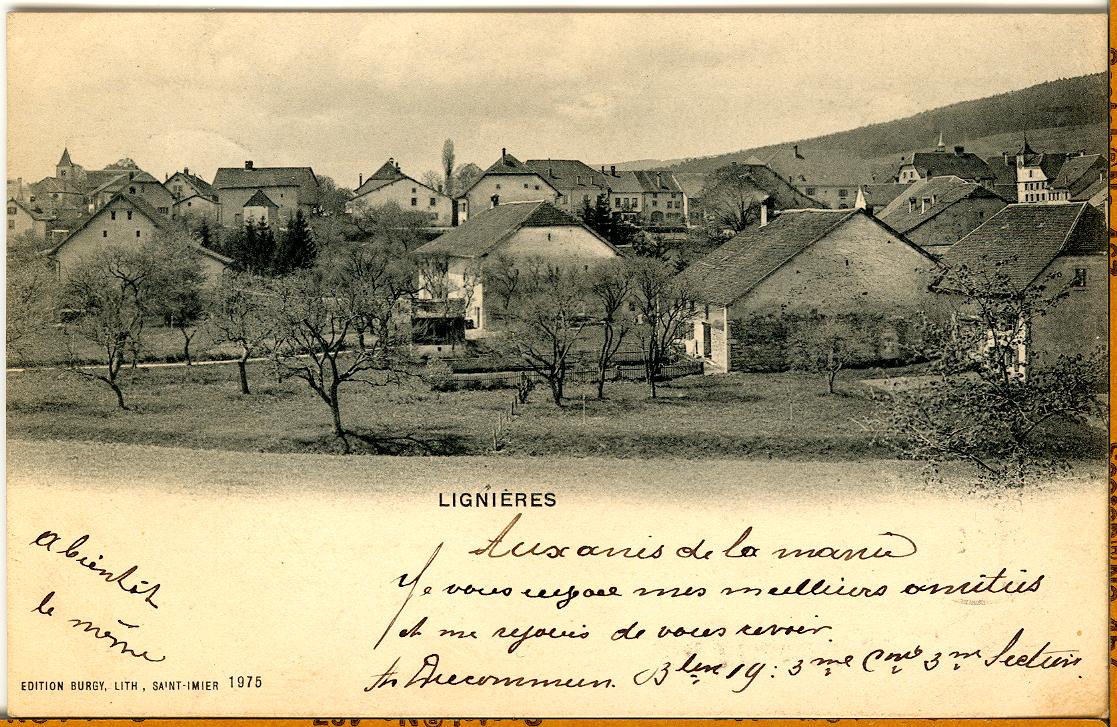 LIGNIÈRES
Aux amis de la
Je vous envoie mes meilliurs amitiés
et me rejouis de vous revoir.
Bten 19: 3me Cnie 3me Section.
A bientôt
le même
EDITION BURGY, LITH, SAINT-IMIER 1975